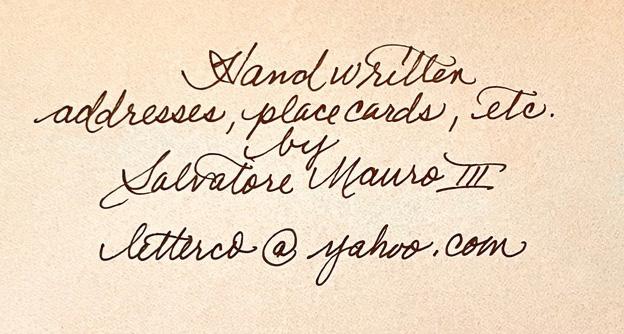 Handwritten
addresses, place cards, etc.
by
Salvatore Mauro III
letterco @ yahoo.com